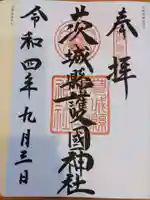 奉拝
茨城縣護國神社
令和四年九月三日